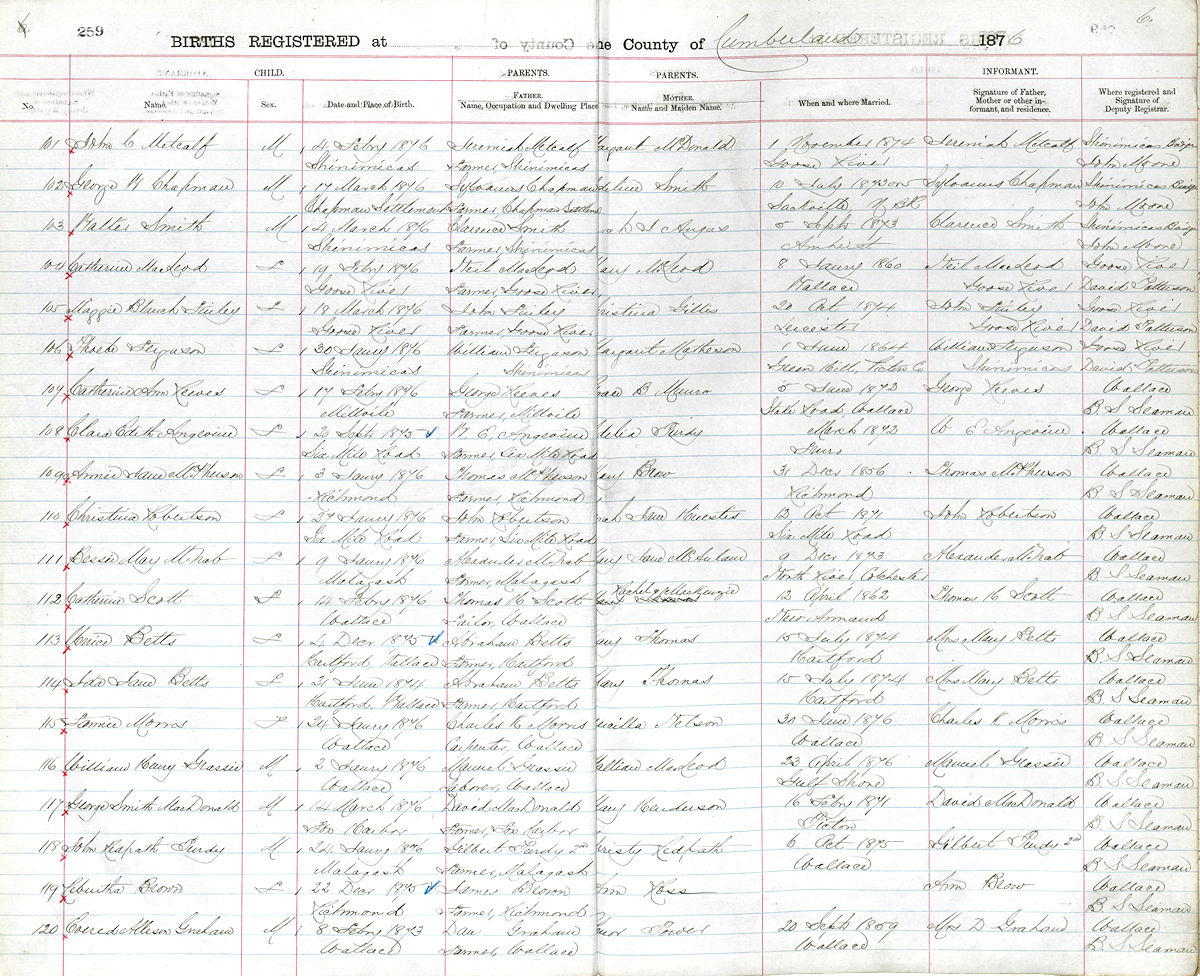 259
6.
BIRTHS REGISTERED at he County of Cumberland 1876
CHILD. PARENTS. PARENTS. INFORMANT.
No. Name. Sex. Date and Place of Birth. FATHER. Name, Occupation and Dwelling Place MOTHER. Name and Maiden Name. When and where Married. Signature of Father, Mother or other informant, and residence. Where registered and Signature of Deputy Registrar.
101 John C Metcalf M 4 Febry 1876 Jeremiah Metcalf argaret McDonald 1 November 1874 Jeremiah Metcalf Shinimicas Bridge
Shinimicas Farmer, Shinimicas Goose River John Moore
102 George Chapman M 17 March 1876 Sylvanus Chapman Smith 10 July 1873 Sylvanus Chapman Shinimicas Bridge
Chapman Settlement Farmer, Chapman Settlem Sackville N. BK John Moore
103 Walter Smith M 4 March 1876 Clarence Smith Angus 5 Septr 1873 Clarence Smith Shinimicas Bridge
Shinimicas Farmer Shinimicas Amherst John Moore
104 Catherine MacLeod F 19 Febry 1876 Neil MacLeod ary McLeod 8 Janry 1860 Neil MacLeod Goose River
Goose River Farmer, Goose River, Wallace Goose River David Patterson
105 Maggie Blanch F 18 March 1876 John hristina Gillis 20 Oct 1874 John Goose River
Goose River Farmer, Goose River Leicester Goose River David Patterson
106 Phoebe Ferguson F 30 Janry 1876 William Ferguson argaret Matheson 1 June 1864 William Ferguson Goose River
Shinimicas Shinimicas Green Hill, Pictou Co Shinimicas David Patterson
107 Catherine Ann Reeves F 17 Febry 1876 George Reeves race B Munro 5 June 1872 George Reeves Wallace
Millvile Farmer, Millvile Road Wallace B. S Seaman
108 Clara Edith Angevine F 20 Septr 1875 W. E. Angevine delia Purdy March 1872 W E Angevine Wallace
Six Mile Road Farmer, Six Mile Road Truro B S Seaman
109 Annie Jane McPherson F 3 Janry 1876 Thomas McPherson ary Brow 31 Decr 1856 Thomas McPherson Wallace
Richmond Farmer, Richmond Richmond B S Seaman
110 Christina Robertson F 27 Janry 1876 John Robertson rah Jane Huestis 12 Oct 1871 John Robertson Wallace
Six Mile Road Farmer, Six Mile Road Six Mile Road B S Seaman
111 Bessie May McNab F 9 Janry 1876 Alexander McNab ary Jane 9 Decr 1873 Alexander McNab Wallace
Malagash Farmer, Malagash North River Colchester B S Seaman
112 Catherine Scott F 14 Febry 1876 Thomas H Scott Rachel MacKenzie 12 April 1862 Thomas H Scott Wallace
Wallace Tailor, Wallace New Annand B. S Seaman
113 Betts F 4 Decr 1875 Abraham Betts ary Thomas 15 July 1874 Mrs Mary Betts Wallace
Hartford Wallace Farmer, Hartford Hartford B. S Seaman
114 Ida Jane Betts F 21 June 1874 Abraham Betts ary Thomas 15 July 1874 Mrs Mary Betts Wallace
Hartford Wallace Farmer, Hartford Hartford B S Seaman
115 Morris F 24 Janry 1876 Charles K. Morris Nelson 20 June 1876 Charles K Morris Wallace
Wallace Carpenter, Wallace Wallace B. S Seaman
116 William Henry Grassie M 2 Janry 1876 Grassie illian MacLeod 23 April 1876 Grassie Wallace
Wallace Laborer, Wallace Gulf Shore B. S Seaman
117 George Smith MacDonald M 14 March 1876 David MacDonald ary Henderson 16 Febry 1871 David MacDonald Wallace
Fox Harbor Farmer, Fox Harbor Pictou B. S Seaman
118 John Redpath Purdy M 24 Janry 1876 Gilbert Purdy 2nd hristy Redpath 6 Oct 1875 Gilbert Purdy 2nd Wallace
Malagash Farmer, Malagash Wallace B S Seaman
119 Brown F 22 Decr 1875 James Brown nn Ross Ann Brow Wallace
Richmond Farmer, Richmond B S Seaman
120 Allison Graham M 8 Febry 1873 Dan Graham Power 20 Septr 1859 Mrs D Graham Wallace
Wallace Farmer, Wallace Wallace B. S Seaman